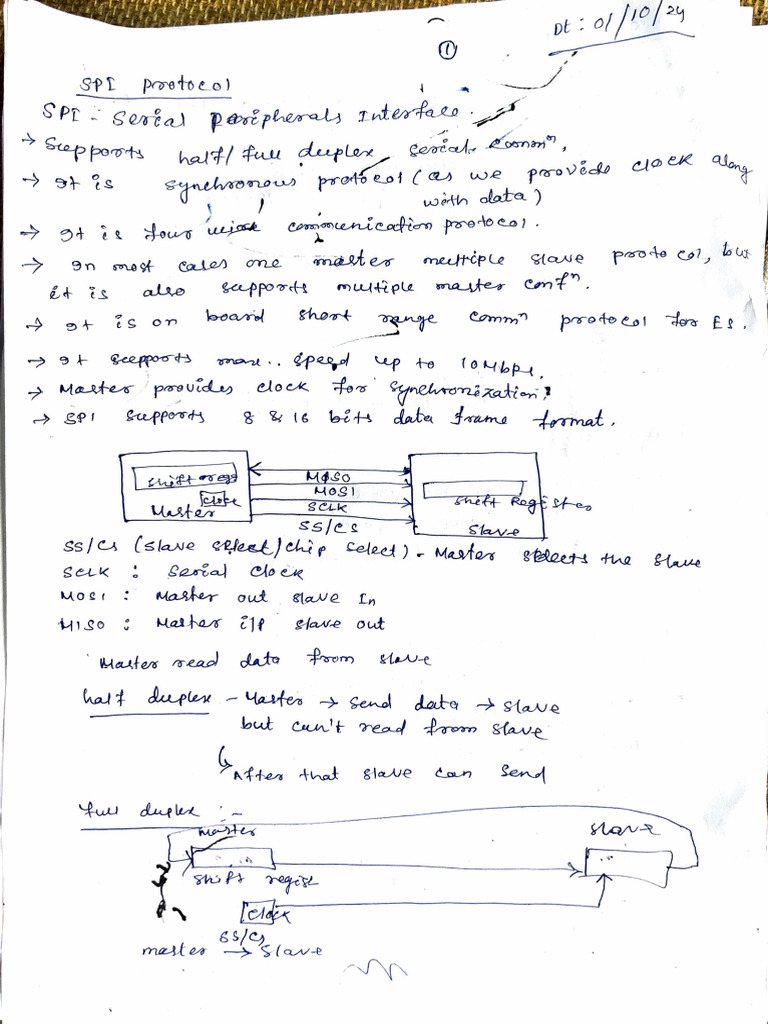 Dt: 01/10/24
1
SPI Protocol
SPI - Serial Peripherals Interface.
→ Supports half/full duplex serial commⁿ.
→ It is synchronous protocol (as we provide clock along
with data)
→ It is four wire communication protocol.
→ In most cases one master multiple slave protocol, but
it is also supports multiple master confⁿ.
→ It is on board short range commⁿ protocol for ES.
→ It supports max.. speed up to 10Mbps.
→ Master provides clock for synchronization.
→ SPI supports 8 & 16 bits data frame format.
Shift regs
MOSO
MOSI
Clock
SCLK
Shift Register
Master
SS/CS
Slave
SS/CS (Slave select/chip select) - Master selects the slave
SCLK : Serial clock
MOSI : Master out slave In
MISO : Master i/p slave out
Master read data from slave
half duplex - Master → send data → slave
but can't read from slave
↳ After that slave can send
full duplex :-
master
slave
shift regist
clock
SS/CS
master → slave